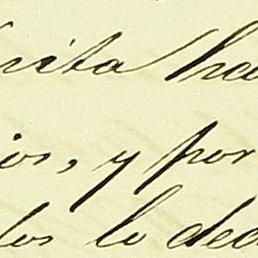 rita ha
ios, y por
los lo ded